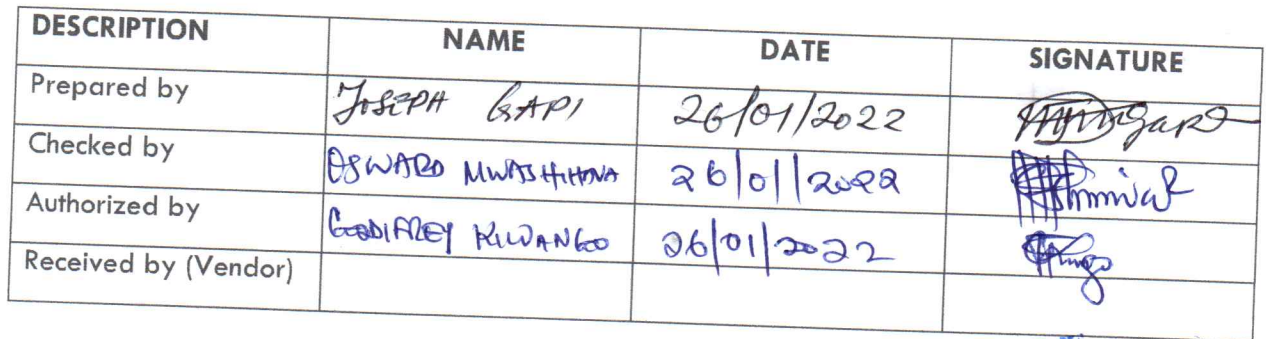 DESCRIPTION NAME DATE SIGNATURE
Prepared by JOSEPH GAPI 26/01/2022
Checked by OSWARD 26/01/2022
Authorized by GODIFREY KIWANGO 26/01/2022
Received by (Vendor)